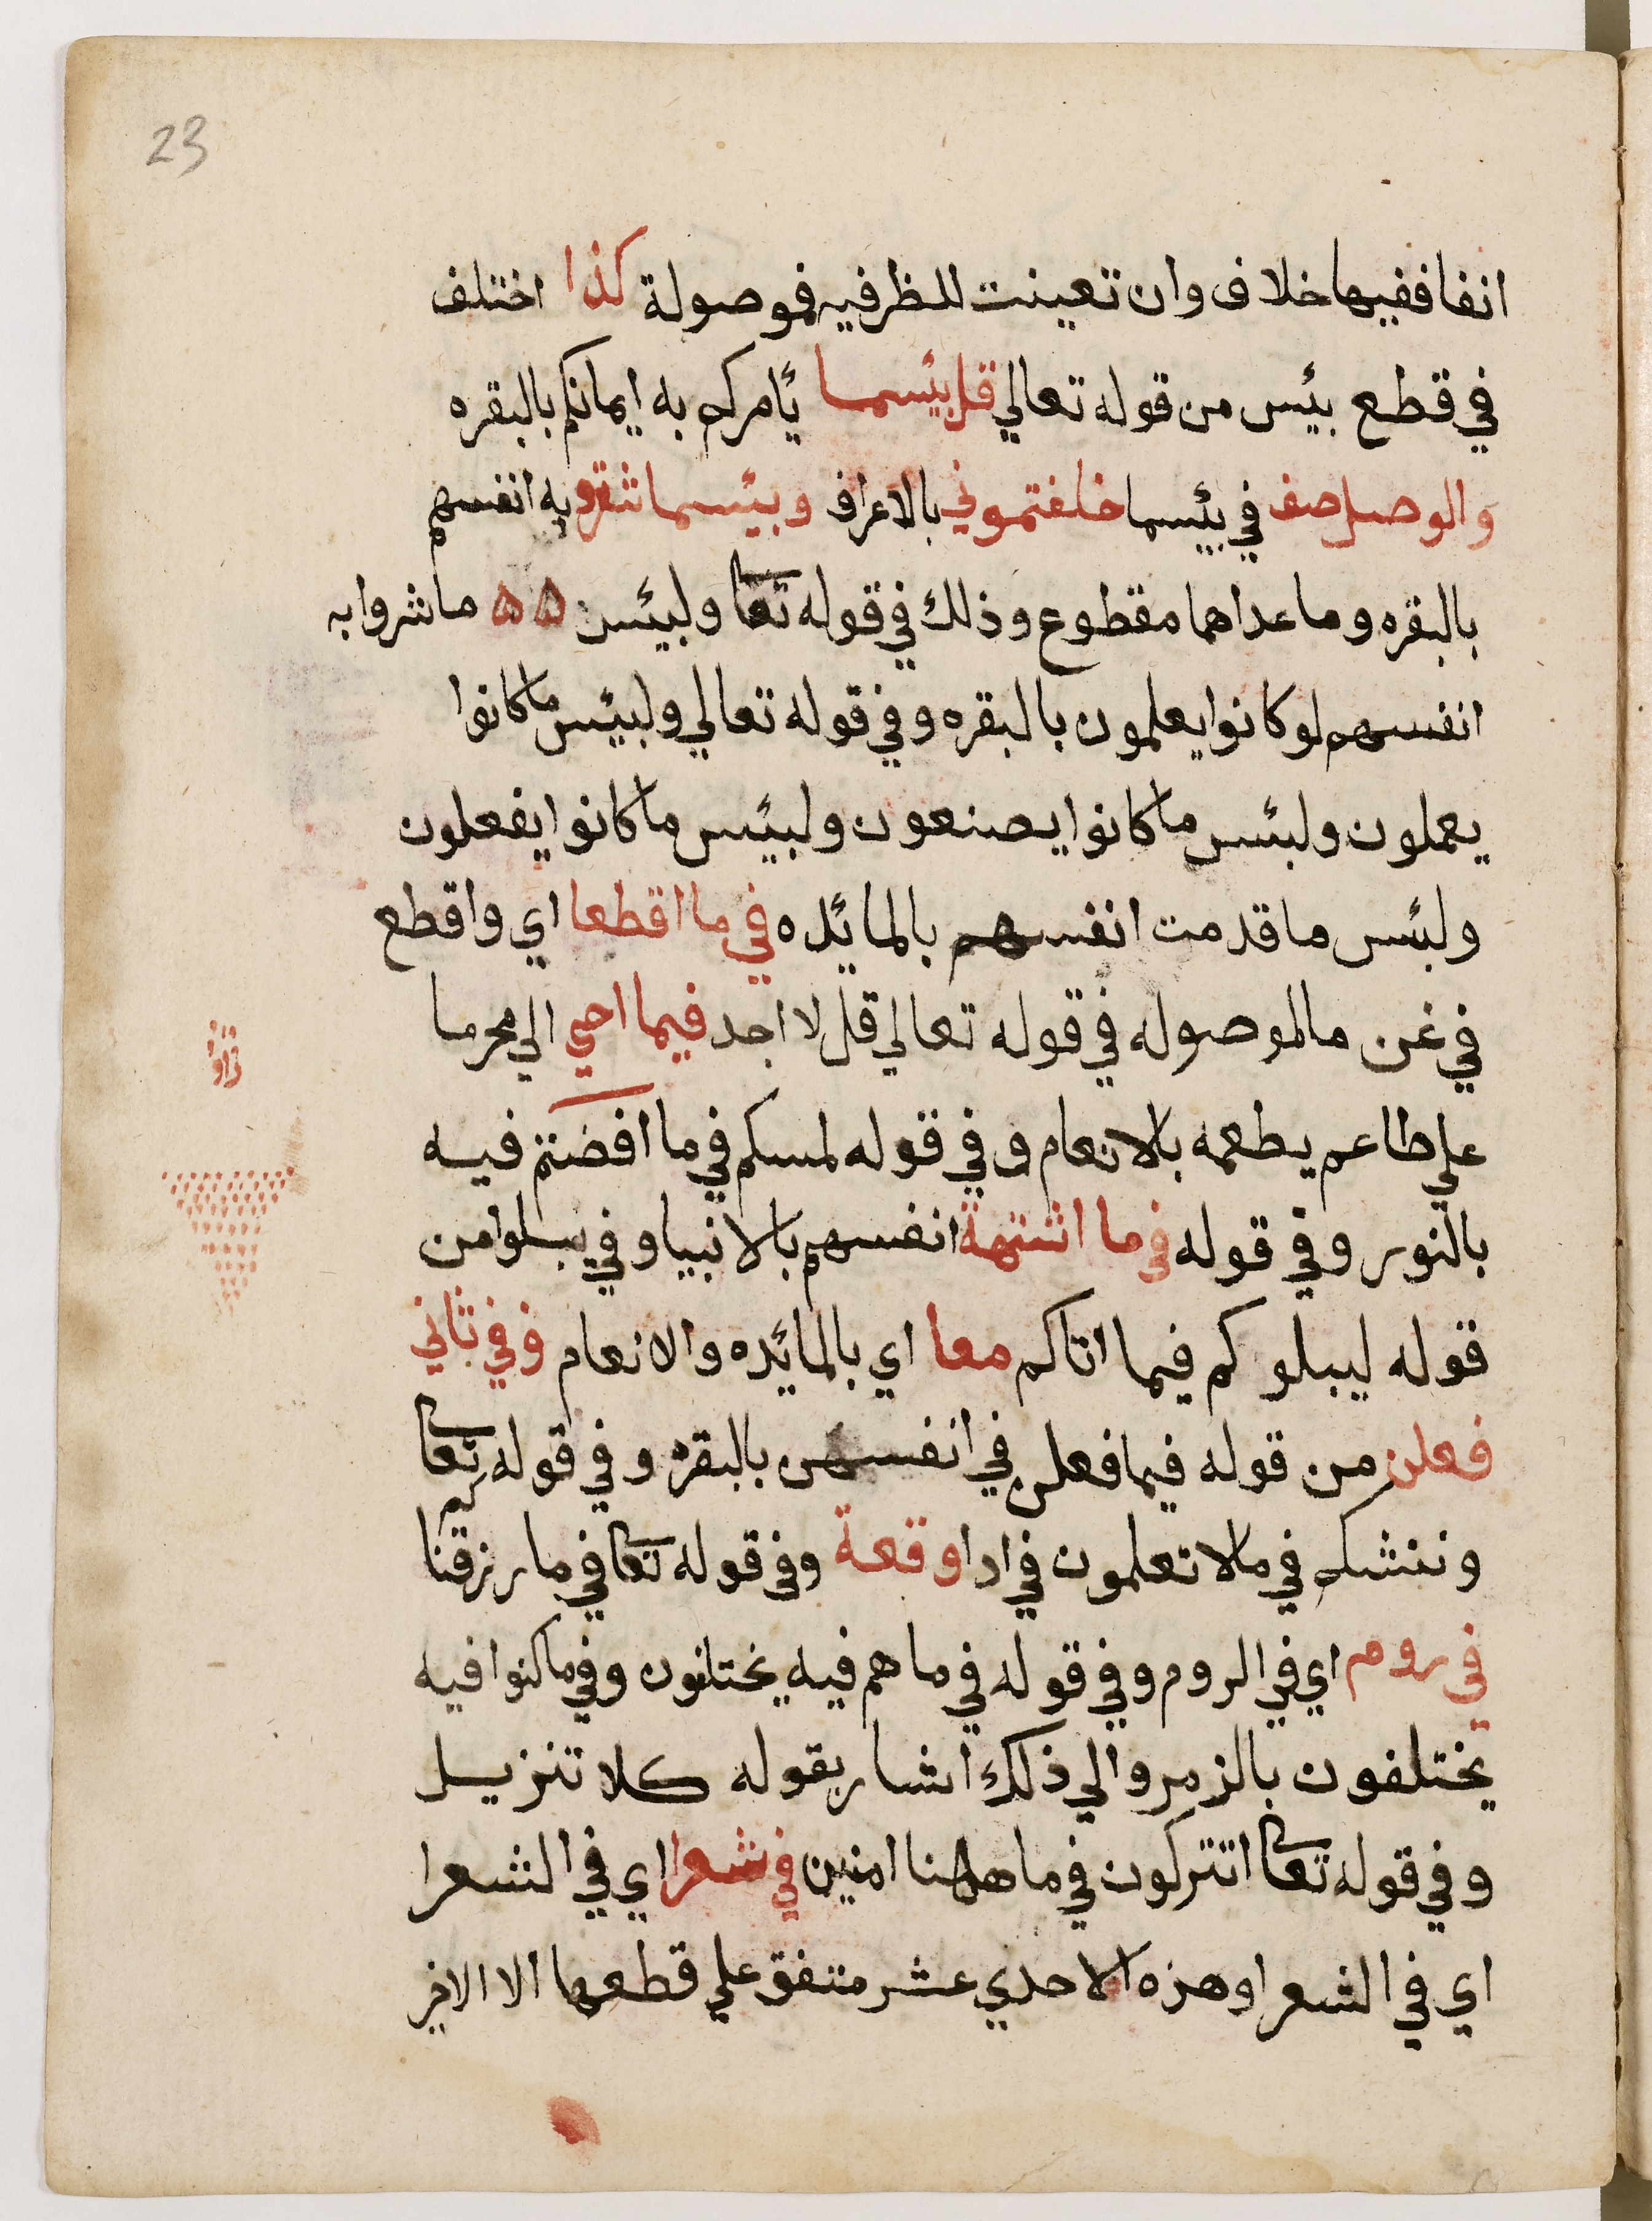 23
انفا ففيها خلاف وان تعينت للظرفيه فموصولة كذا اختلف
في قطع بيئس من قوله تعالي قل بيئسما يأمركم به ايمانكم بالبقره
والوصل صف في بيئسما خلفتموني بالاعراف وبيئسما شترو به انفسهم
بالبقره وما عداهما مقطوع وذلك في قوله تعا ولبيئس ۵۵ ما شروا به
انفسهم لو كانوا يعلمون بالبقره وفي قوله تعالي ولبيئس ما كانوا
يعملون ولبئس ما كانوا يصنعون ولبيئس ما كانوا يفعلون
ولبئس ما قدمت انفسهم بالمائده في ما اقطعا اي واقطع
في عن ما الموصوله في قوله تعالي قل لا اجد فيما احي الي محرما
علي طاعم يطعمه بالانعام وفي قوله لمسكم في ما افضتم فيه
بالنور وفي قوله في ما اشتهة انفسهم بالانبيا وفي يبلوا من
قوله ليبلوكم فيما اتاكم معا اي بالمائده والانعام وفي ثاني
فعلن من قوله فيما فعلن في انفسهن بالبقرة وفي قوله تعا
وننشكم في مالا تعلمون في اداوقعة وفي قوله تعا في ما رزقنا
في روم اي في الروم وفي قوله في ما هم فيه يختلفون وفي ما كنوا فيه
يختلفون بالزمر والي ذلك اشار بقوله كلا تنزيل
وفي قوله تعا اتتركون في ما هاهنا امنين في شعرا اي في الشعرا
اي في الشعرا وهزه الاحدي عشر متفق علي قطعها الا الاخر